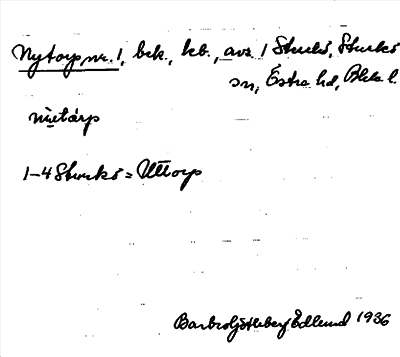 Nytorp, nr. 1, bek., kb., avs. 1 Sturkö, Sturkö
sn, Östra hd, Blek. l.
nìetårp
1-4 Sturkö = Uttorp
Barbro Götheberg Edlund 1936